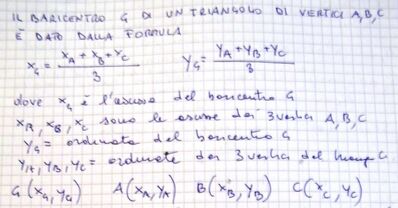 IL BARICENTRO G DI UN TRIANGOLO DI VERTICI A,B,C
È DATO DALLA FORMULA
x_G = (x_A + x_B + x_C)/3   y_G = (y_A + y_B + y_C)/3
dove x_G è l'ascissa del baricentro G
x_A, x_B, x_C sono le ascisse dei 3 vertici A, B, C
y_G = ordinata del baricentro G
y_A, y_B, y_C = ordinate dei 3 vertici del
G (x_G, y_G)   A (x_A, y_A)   B (x_B, y_B)   C (x_C, y_C)